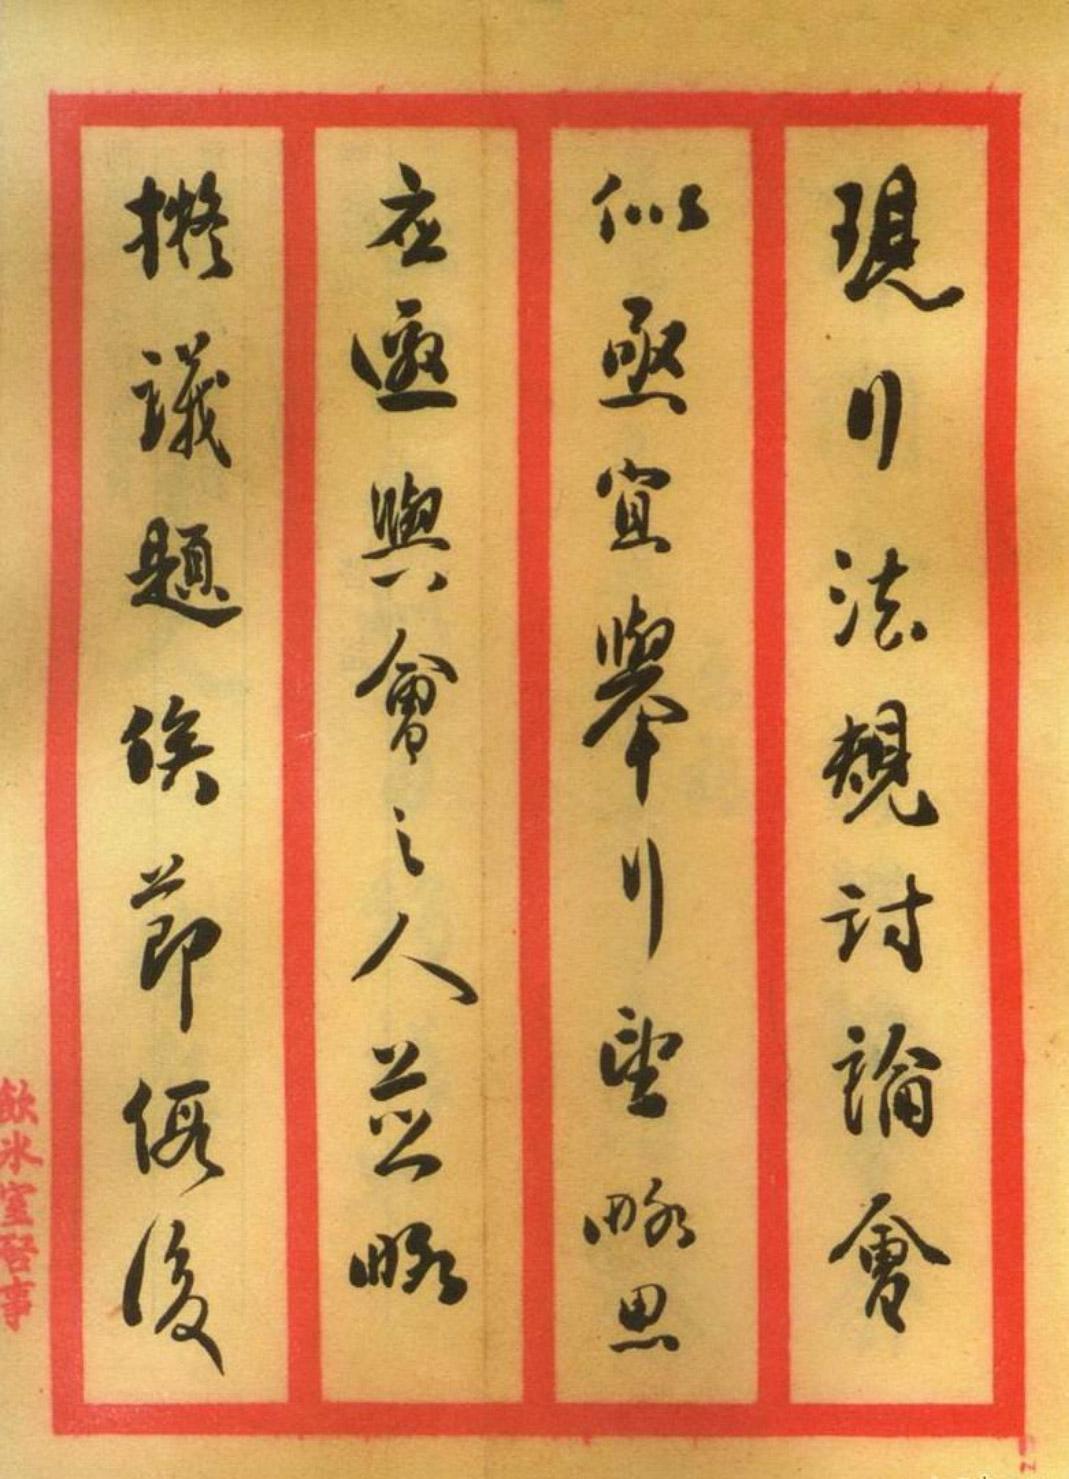 現行法規討論會
似亟宜舉行望略思
應邀與會之人並略
擬議題俟節假後
飲冰室啓事